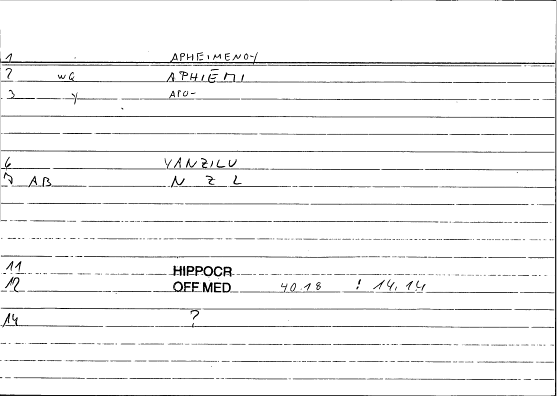 1 APHEIMENOY
2 WG APHIĒMI
3 Y APO-
6 YANZILU
7 AB N Z L
11 HIPPOCR
12 OFF MED 40.18 ! 14,14
14 ?